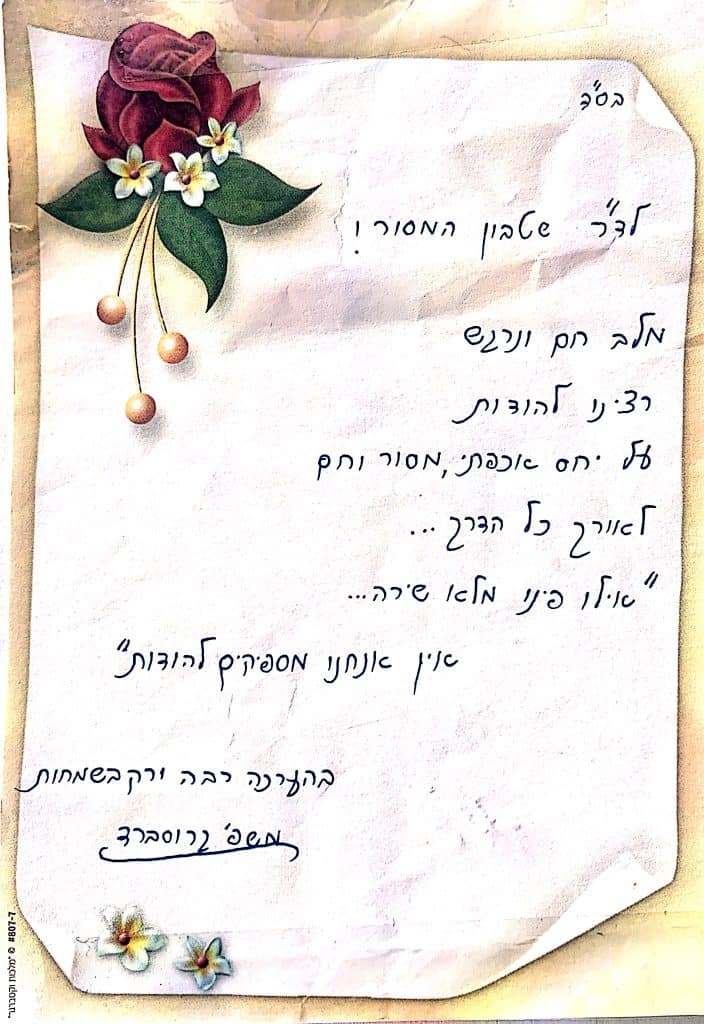 בס"ד
לד"ר שטבון המסור!
מלב חם ונרגש
רצינו להודות
על יחס אכפתי, מסור וחם
לאורך כל הדרך...
"אילו פינו מלא שירה...
אין אנחנו מספיקים להודות"
בהערכה רבה ורק בשמחות
משפ' גרוסברד
#8077